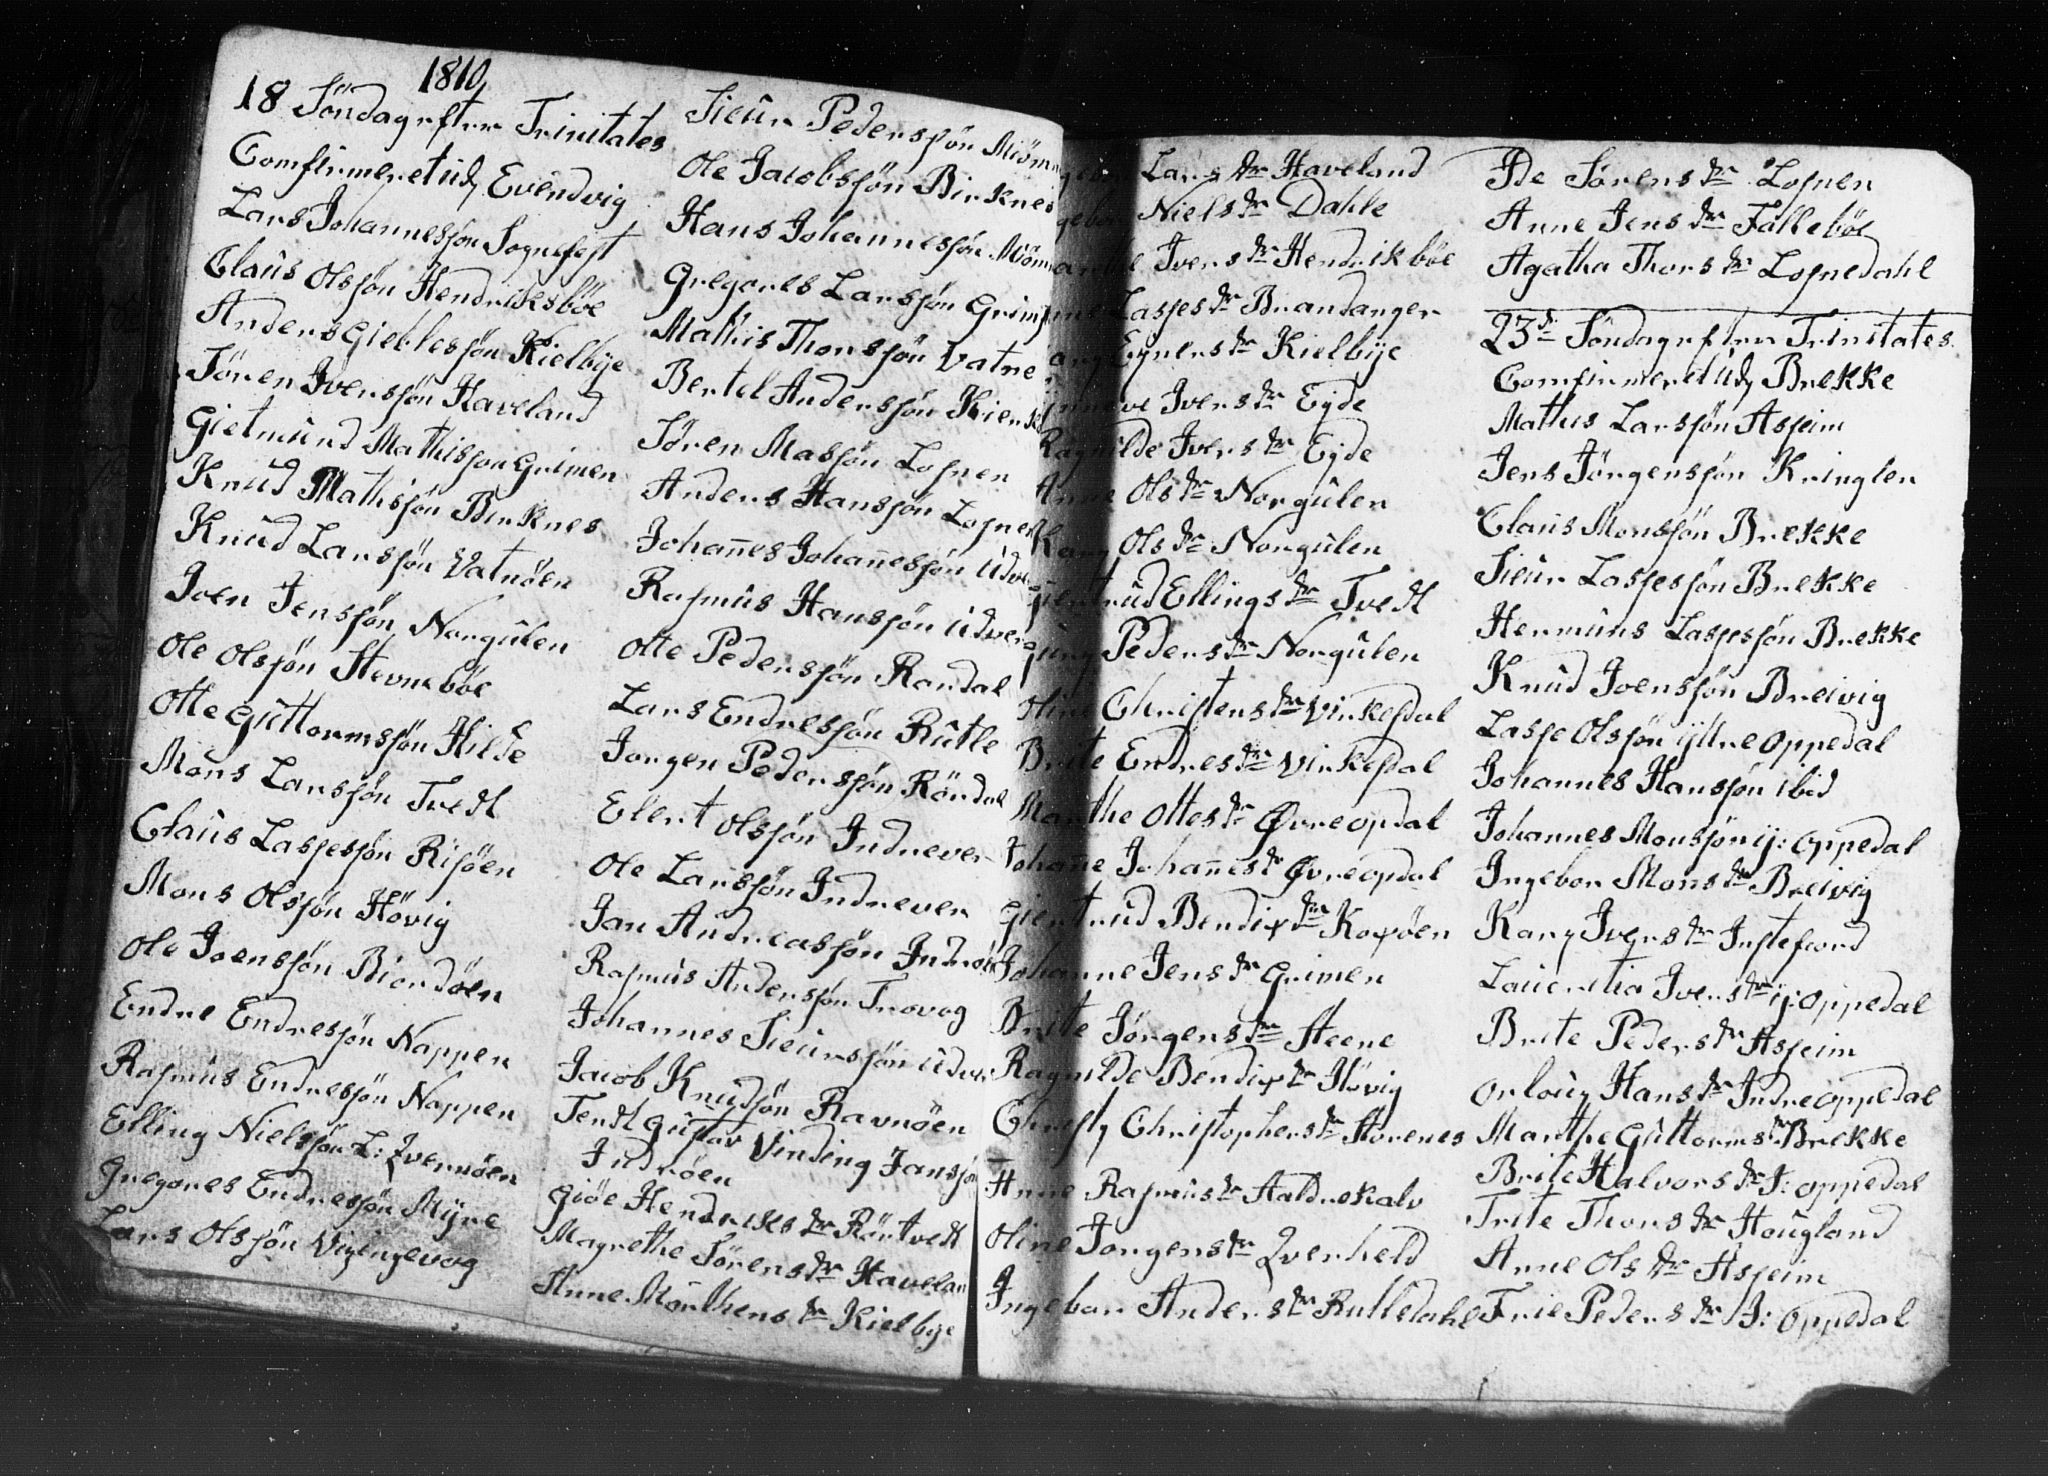 1810
18 Söndag efter Trinitates
Comfirmeret udj Evendvig
Lars Johannessøn Sognefest
Claus Olssøn Hendriksbøe
Anders Gieblessøn Kielbye
Sören Iverssøn Haveland
Gietmund Mathissøn Grimen
Knud Mathisøn Birknes
Knud Larssøn Vatnöen
Joen Jenssøn Norgulen
Ole Olssøn Stevnebøe
Otte Guttormssøn Hilde
Mons Larssøn Tvedt
Claus Lassessøn Risöen
Mons Olssøn Hövig
Ole Joenssøn Biordöen
Endre Endresøn Nappen
Rasmus Endresøn Nappen
Elling Nielssøn L: Qvernöen
Gregores Endresøn Myre
Lars Olssøn Vigingevog
Sieur Pederssøn
Ole Jacobssøn Birknes
Hans Johannessøn
Gregores Larssøn
Mathis Thorssøn Vatne
Bertel Anderssøn
Sören Massøn Losnen
Anders Hanssøn
Johannes Johannessøn
Rasmus Hanssøn
Otte Pederssøn Randal
Lars Endresøn Rutle
Jorgen Pederssøn Röndal
Elert Olssøn Indrever
Ole Larssøn Indrever
Jan Andreassøn
Rasmus Anderssøn Trovog
Johannes Sieurssøn
Jacob Knudsøn Ravnöen
Tendt Gustav Vinding Janssøn
Indröen
Giöe Hendriks dr Röntvedt
Magrethe Sörens dr Haveland
Anne Mouthens dr Kielbye
Lars dr Haveland
Niels dr Dahle
Ivers dr Hendrikbøe
Lasses dr Brandanger
Egners dr Kielbye
Ivers dr Eyde
Ragnilde Ivers dr Eyde
Anne Ols dr Norgulen
Kary Ols dr Norgulen
Giertrud Ellings dr Tvedt
Peders dr Norgulen
Oline Christens dr Virkesdal
Brite Endres dr Virkesdal
Marthe Ottes dr Øvreopdal
Johanne Johannes dr Øvreopdal
Giertrud Bendix dr Koxöen
Johanne Jens dr Grimen
Brite Jörgens dr Steene
Ragnilde Bendix dr Hövig
Christy Christophers dr Storenes
Anne Rasmus dr Staldrekalv
Oline Jorgens dr Qverheld
Ingebor Anders dr Rulledahl
Ide Sörens dr Losnen
Anne Jens dr Follebøe
Agatha Thors dr Losnedahl
23de Söndag efter Trinitates
Comfirmeret udj Brekke
Mathis Larssøn Asheim
Jens Jörgenssøn Kringlen
Claus Monssøn Brekke
Sieur Lassesøn Brekke
Hermuns Lassesøn Brekke
Knud Joenssøn Breivig
Lasse Olssøn ÿttre oppedal
Johannes Hanssøn ibid
Johannes Monssøn ij: oppedal
Ingebor Mons dr Breivig
Kary Ivers dr Instefiord
Laurentia Ivers dr ij: oppedal
Brite Peders dr Asheim
Orlouy Hans dr Indre oppedal
Marthe Guttorms dr Brekke
Brite Halvors dr I: oppedal
Trite Thors dr Hougland
Anne Ols dr Asheim
Trie Peders dr I: oppedal